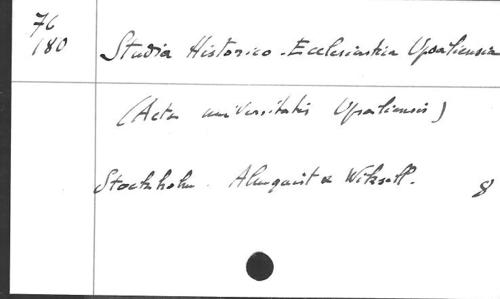 76
180
Studia Historico-Ecclesiastica Upsaliensia
(Acta universitatis Upsaliensis)
Stockholm. Almquist & Wiksell. 8